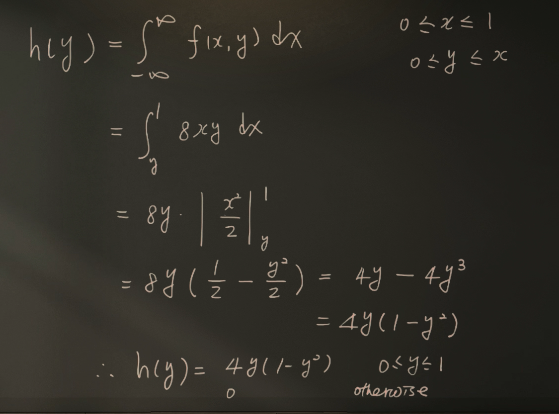 h(y) = ∫_{-∞}^{∞} f(x,y) dx    0 ≤ x ≤ 1
0 ≤ y ≤ x
= ∫_{y}^{1} 8xy dx
= 8y · | x²/2 |_{y}^{1}
= 8y ( 1/2 - y²/2 ) = 4y - 4y³
= 4y(1-y²)
∴ h(y) = 4y(1-y²)    0≤y≤1
0    otherwise